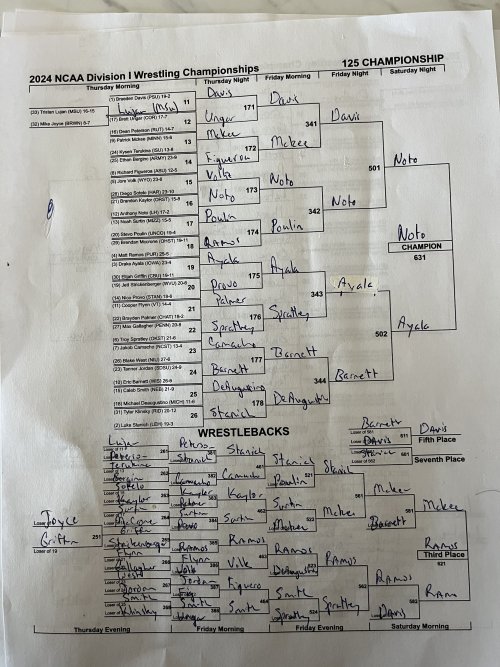 2024 NCAA Division I Wrestling Championships
125 CHAMPIONSHIP
Thursday Morning
Thursday Night
Friday Morning
Friday Night
Saturday Night
(1) Braeden Davis (PSU) 19-2
Lujan (MSU)
11
(33) Tristan Lujan (MSU) 16-15
(32) Mike Joyce (BRWN) 8-7
(17) Brett Ungar (COR) 17-7
12
(16) Dean Peterson (RUT) 14-7
(9) Patrick McKee (MINN)
13
(24) Kysen Terukina (ISU) 13-8
(25) Ethan Berginc (ARMY) 23-9
14
(8) Richard Figueroa (ASU) 12-5
(5) Jore Volk (WYO) 23-8
15
(28) Diego Sotelo (HAR) 23-10
(21) Brendon Kaylor (ORST) 15-8
16
(12) Anthony Noto (LH) 17-2
(13) Noah Surtin (MIZZ) 15-5
17
(20) Stevo Poulin (UNCO) 19-4
(29) Brendan McCrone (OHST) 19-11
18
(4) Matt Ramos (PUR) 25-5
(3) Drake Ayala (IOWA) 23-4
19
(30) Elijah Griffin (CBU) 19-11
(19) Jett Strickenberger (WVU) 20-8
20
(14) Nico Provo (STAN) 19-6
(11) Cooper Flynn (VT) 14-4
21
(22) Brayden Palmer (CHAT) 18-2
(27) Max Gallagher (PENN) 20-8
22
(6) Troy Spratley (OKST) 21-6
(7) Jakob Camacho (NCST) 13-4
23
(26) Blake West (NIU) 27-8
(23) Tanner Jordan (SDSU) 24-9
24
(10) Eric Barnett (WIS) 26-5
(15) Caleb Smith (NEB) 21-9
25
(18) Michael DeAugustino (MICH) 11-6
(31) Tyler Klinsky (RID) 20-12
26
(2) Luke Stanich (LEH) 19-3
Davis
171
Ungar
McKee
172
Figueroa
Volk
173
Noto
Poulin
174
Ramos
Ayala
175
Provo
Palmer
176
Spratley
Camacho
177
Barnett
DeAugustino
178
Stanich
Davis
341
McKee
Noto
342
Poulin
Ayala
343
Spratley
Barnett
344
DeAugustin
Davis
501
Noto
Ayala
502
Barnett
Noto
Noto
CHAMPION
631
Ayala
WRESTLEBACKS
Barnett
Loser of 581
Davis
611
Davis
Fifth Place
Stanich
Loser of 562
601
Seventh Place
Joyce
Griffin
251
Loser of 19
Lujan
Peterson
261
Terukina
262
Sotelo
263
Kaylor
Surtin
McCrone
Griffin
Flynn
Gallagher
West
Jordan
Smith
Klinsky
Peterson
Stanich
Camacho
Kaylor
Surtin
Provo
Ramos
Flynn
Volk
Jordan
Smith
Stanich
461
Camacho
Kaylor
Surtin
Ramos
Volk
Figuero
Smith
Stanich
Poulin
521
Surtin
McKee
Ramos
DeAugustin
Smith
Spratley
524
Stanich
561
McKee
Ramos
562
Spratley
McKee
581
Barnett
Ramos
582
Davis
McKee
Ramos
Third Place
621
Ramos
Thursday Evening
Friday Morning
Friday Evening
Saturday Morning